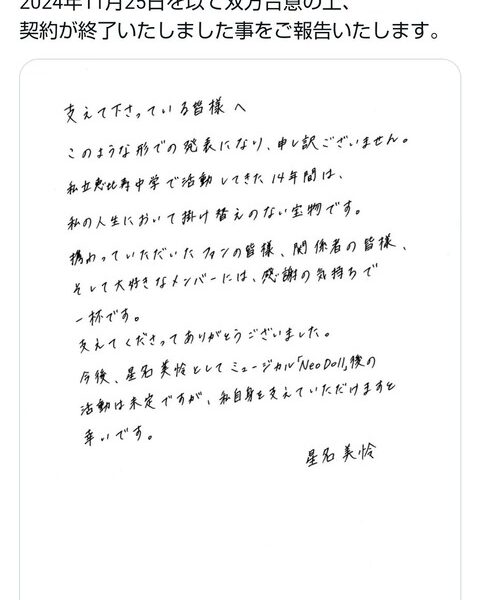 2024年11月25日を以て双方合意の上、
契約が終了いたしました事をご報告いたします。
支えて下さっている皆様へ
このような形での発表になり、申し訳ございません。
私立恵比寿中学で活動してきた14年間は、
私の人生において掛け替えのない宝物です。
携わっていただいたファンの皆様、関係者の皆様、
そして大好きなメンバーには、感謝の気持ちで
一杯です。
支えてくださってありがとうございました。
今後、星名美怜としてミュージカル「NeoDoll」後の
活動は未定ですが、私自身を支えていただけますと
幸いです。
星名美怜